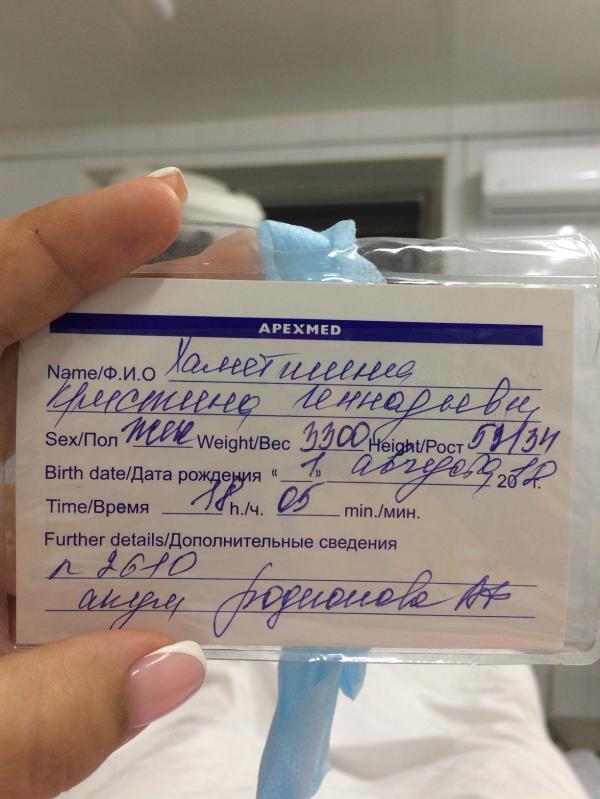 APEXMED
Name/Ф.И.О Хаметшина
Кристина Геннадьевн
Sex/Пол жен Weight/Вес 3300 Height/Рост 52/34
Birth date/Дата рождения « 1 » августа 20 г.
Time/Время 18 h./ч. 05 min./мин.
Further details/Дополнительные сведения
2610
акуш Родионова